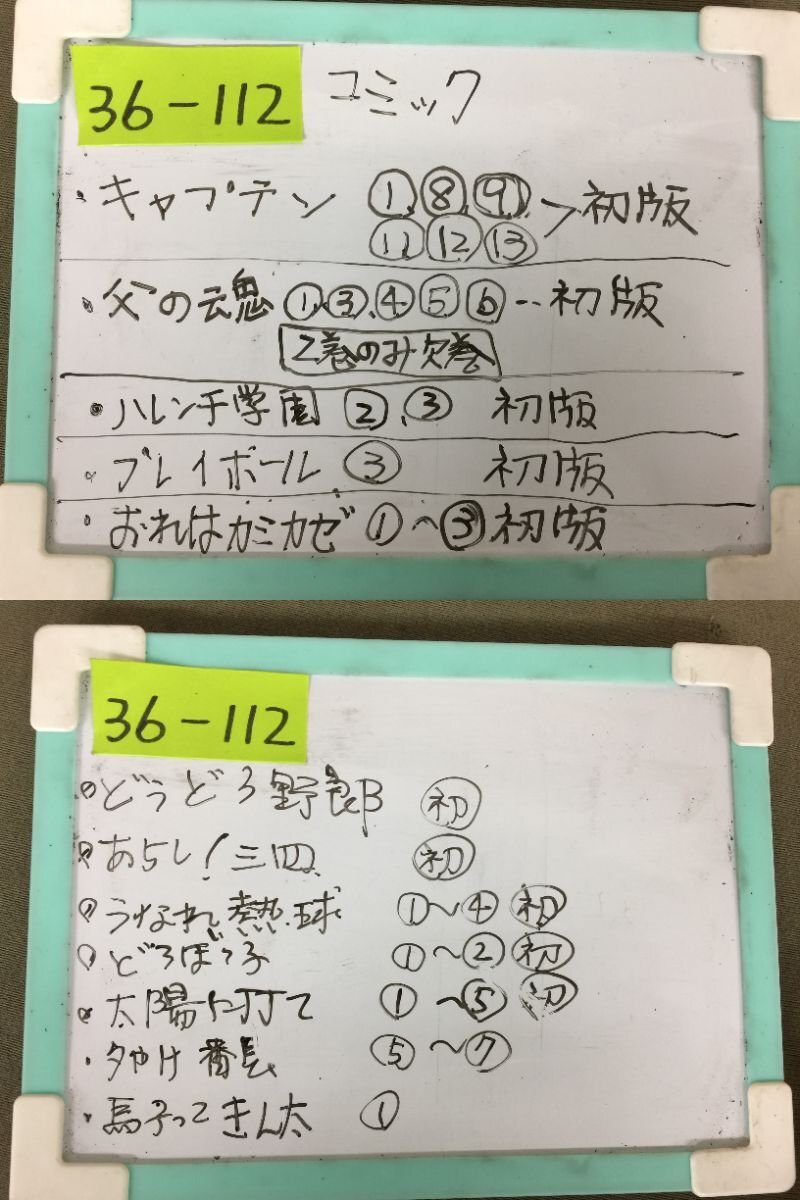 36-112 コミック
・キャプテン ①,⑧,⑨
⑪⑫⑬ >初版
・父の魂 ①,③,④⑤⑥ -- 初版
2巻のみ欠巻
・ハレンチ学園 ②,③ 初版
・プレイボール ③ 初版
・おれはカミカゼ ①~③初版
36-112
・どうどろ野郎 初
・あらし!三四 初
・うなれ熱球 ①~④ 初
・どろぼっ子 ①~② 初
・太陽に打て ①~⑤ 初
・夕やけ番長 ⑤~⑦
・馬子ってきん太 ①